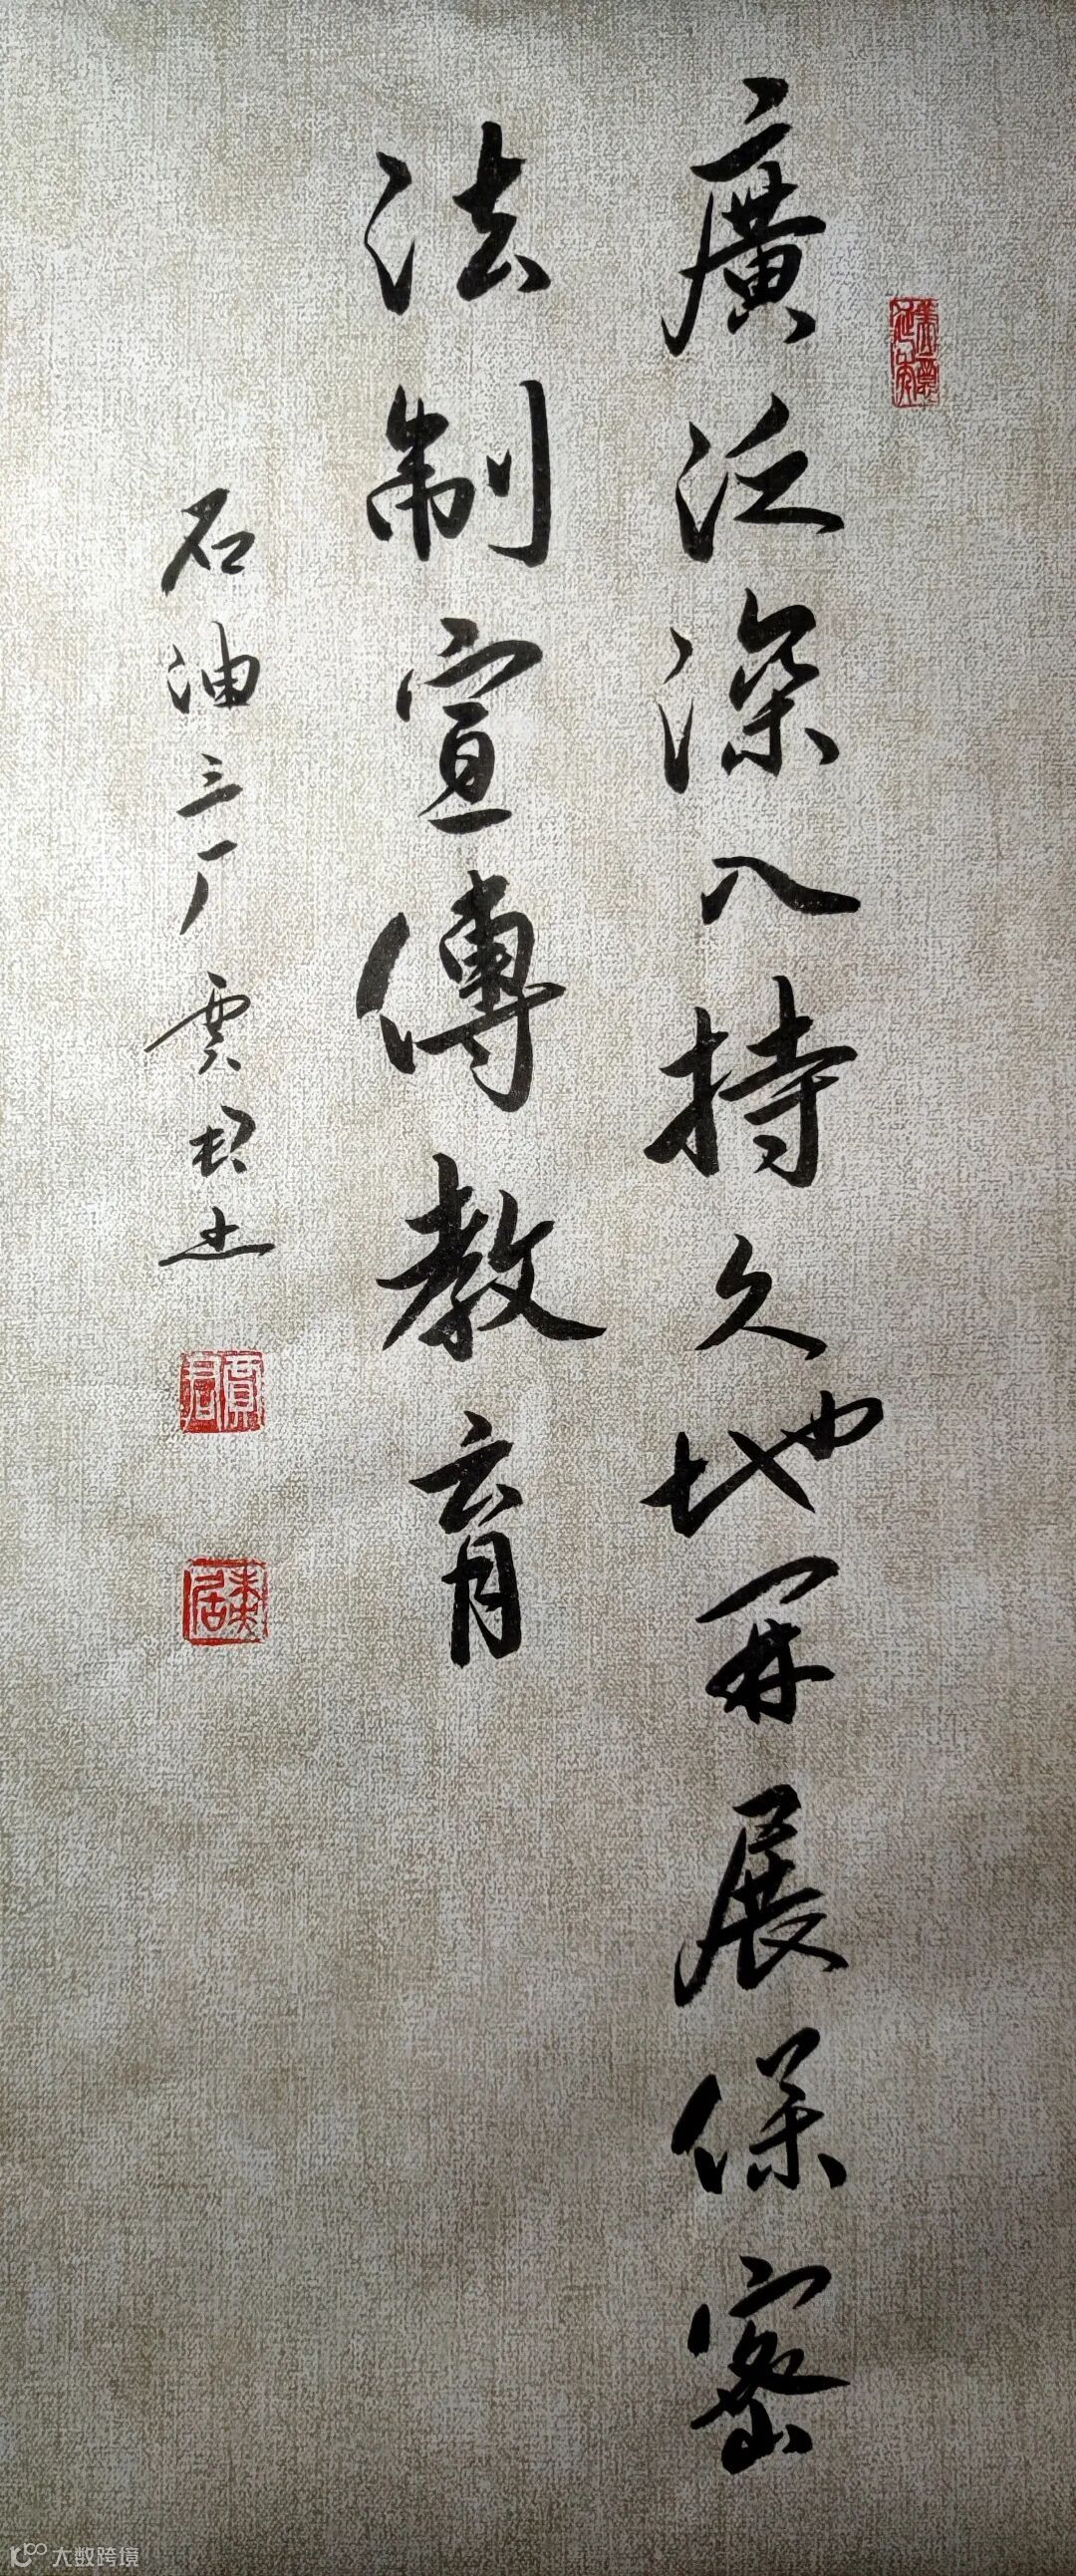 廣泛深入持久地開展保密
法制宣傳教育
石油三厂
未央居
大数跨境